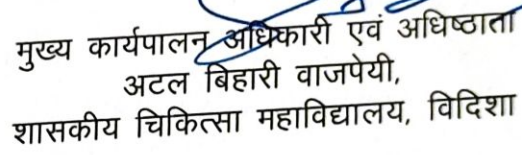 मुख्य कार्यपालन अधिकारी एवं अधिष्ठाता
अटल बिहारी वाजपेयी,
शासकीय चिकित्सा महाविद्यालय, विदिशा